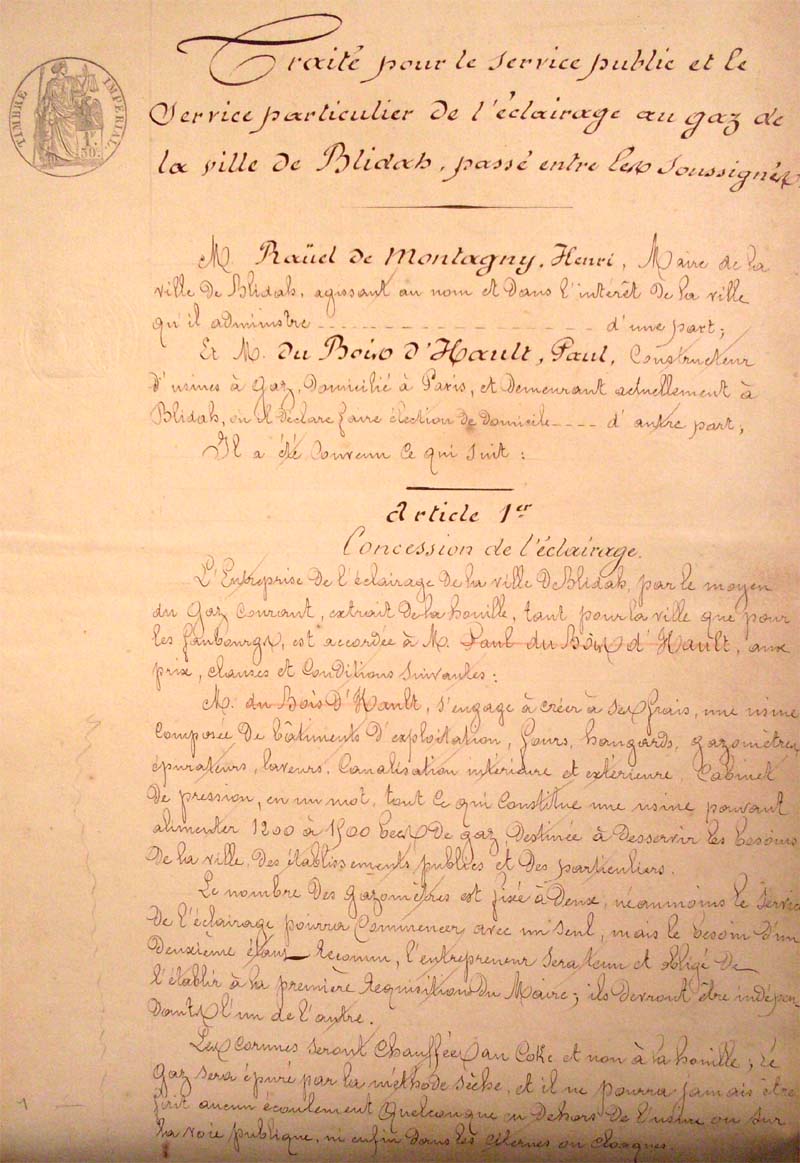 TIMBRE IMPERIAL
1 F. 50 C.
Traité pour le service public et le
Service particulier de l'éclairage au gaz de
la ville de Blidah, passé entre les Soussignés,
M. Raüel de Montagny, Henri, Maire de la
ville de Blidah, agissant au nom et dans l'intérêt de la ville
qu'il administre - - - - - - - - - - - - d'une part;
Et M. du Bois d'Hault, Paul, Constructeur
d'usines à Gaz, domicilié à Paris, et demeurant actuellement à
Blidah, où il déclare faire élection de domicile - - - - d'autre part;
Il a été convenu ce qui suit :
Article 1er
Concession de l'éclairage.
L'Entreprise de l'éclairage de la ville de Blidah, par le moyen
du Gaz Courant, extrait de la houille, tant pour la ville que pour
les faubourgs, est accordée à M. Paul du Bois d'Hault, aux
prix, clauses et Conditions suivantes :
M. du Bois d'Hault, s'engage à créer à ses frais, une usine
Composée de bâtiments d'exploitation, fours, hangards, gazomètres,
épurateurs, laveurs, Canalisation intérieure et extérieure, Cabinet
de pression, en un mot, tout ce qui constitue une usine pouvant
alimenter 1200 à 1500 becs de gaz, destinée à desservir les besoins
de la ville, des établissements publics et des particuliers.
Le nombre des gazomètres est fixé à deux, néanmoins le Servic
de l'éclairage pourra commencer avec un seul, mais le besoin d'un
deuxième étant reconnu, l'entrepreneur sera tenu et obligé de
l'établir à la première réquisition du Maire; ils devront être indépen-
dants l'un de l'autre.
Les cornues seront chauffées au Coke et non à la houille; le
gaz sera épuré par la méthode sèche, et il ne pourra jamais être
fait aucun écoulement quelconque en dehors de l'usine ou sur
la voie publique, ni enfin dans les citernes ou cloaques.